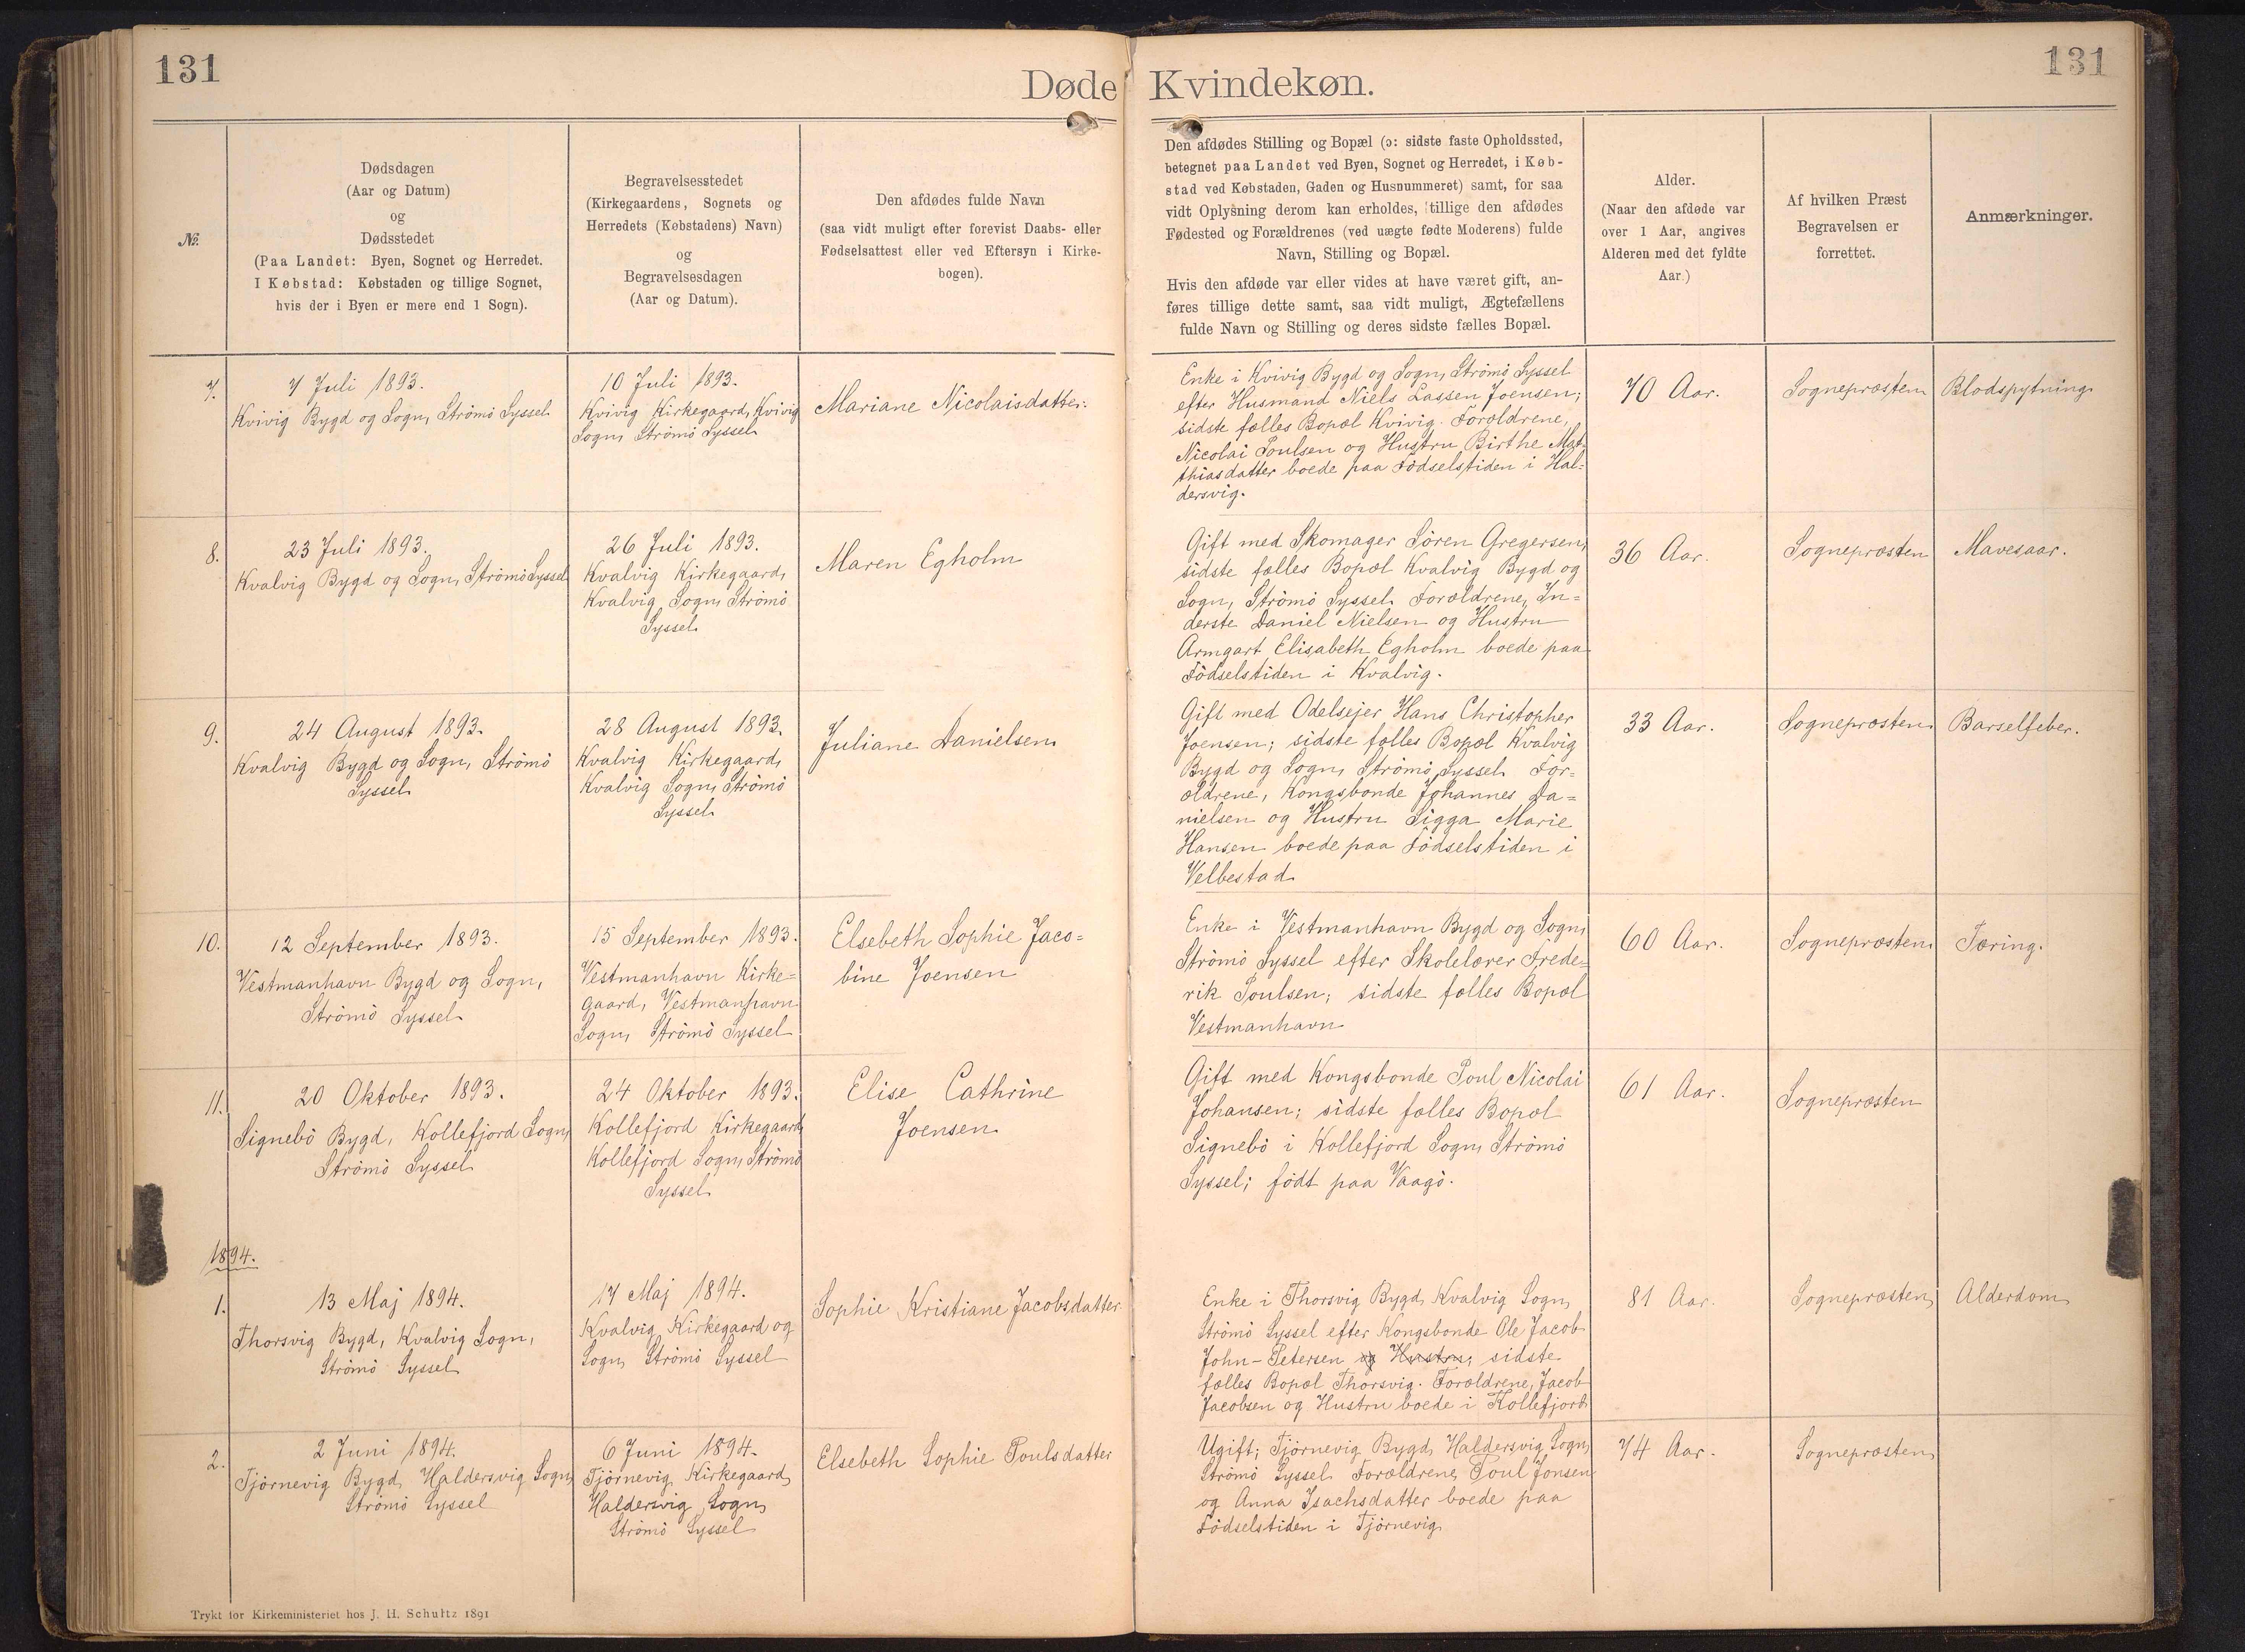 131
Døde Kvindekøn.
131
№.
Dødsdagen
(Aar og Datum)
og
Dødsstedet
(Paa Landet: Byen, Sognet og Herredet.
I Købstad: Købstaden og tillige Sognet,
hvis der i Byen er mere end 1 Sogn).
Begravelsesstedet
(Kirkegaardens, Sognets og
Herredets (Købstadens) Navn)
og
Begravelsesdagen
(Aar og Datum).
Den afdødes fulde Navn
(saa vidt muligt efter forevist Daabs- eller
Fødselsattest eller ved Eftersyn i Kirke-
bogen).
Den afdødes Stilling og Bopæl (ɔ: sidste faste Opholdssted,
betegnet paa Landet ved Byen, Sognet og Herredet, i Køb-
stad ved Købstaden, Gaden og Husnummeret) samt, for saa
vidt Oplysning derom kan erholdes, tillige den afdødes
Fødested og Forældrenes (ved uægte fødte Moderens) fulde
Navn, Stilling og Bopæl.
Hvis den afdøde var eller vides at have været gift, an-
føres tillige dette samt, saa vidt muligt, Ægtefællens
fulde Navn og Stilling og deres sidste fælles Bopæl.
Alder.
(Naar den afdøde var
over 1 Aar, angives
Alderen med det fyldte
Aar.)
Af hvilken Præst
Begravelsen er
forrettet.
Anmærkninger.
7.
7 Juli 1893.
Kvivig Bygd og Sogn, Strömö Syssel
10 Juli 1893.
Kvivig Kirkegaard, Kvivig
Sogn, Strömö Syssel
Mariane Nicolaisdatter.
Enke i Kvivig Bygd og Sogn, Strömö Syssel
efter Husmand Niels Lassen Joensen;
sidste fælles Bopæl Kvivig. Forældrene,
Nicolai Poulsen og Hustru Birthe Mat-
thiasdatter boede paa Födselstiden i Hal-
dersvig.
70 Aar.
Sognepræsten
Blodspytning
8.
23 Juli 1893.
Kvalvig Bygd og Sogn, Strömö Syssel
26 Juli 1893.
Kvalvig Kirkegaard,
Kvalvig Sogn, Strömö
Syssel
Maren Egholm
Gift med Skomager Sören Gregersen;
sidste fælles Bopæl Kvalvig Bygd og
Sogn, Strömö Syssel. Forældrene, In=
derste Daniel Nielsen og Hustru
Armgart Elisabeth Egholm boede paa
Födselstiden i Kvalvig.
36 Aar.
Sognepræsten
Mavesaar.
9.
24 August 1893.
Kvalvig Bygd og Sogn, Strömö
Syssel
28 August 1893.
Kvalvig Kirkegaard,
Kvalvig Sogn, Strömö
Syssel
Juliane Danielsen
Gift med Odelsejer Hans Christopher
Joensen; sidste fælles Bopæl Kvalvig
Bygd og Sogn, Strömö Syssel. For=
ældrene, Kongsbonde Johannes Da=
nielsen og Hustru Sigga Marie
Hansen boede paa Födselstiden i
Velbestad
33 Aar.
Sognepræsten
Barselfeber.
10.
12 September 1893.
Vestmanhavn Bygd og Sogn,
Strömö Syssel
15 September 1893.
Vestmanhavn Kirke=
gaard, Vestmanhavn
Sogn, Strömö Syssel
Elsebeth Sophie Jaco=
bine Joensen
Enke i Vestmanhavn Bygd og Sogn,
Strömö Syssel efter Skolelærer Frede=
rik Poulsen; sidste fælles Bopæl
Vestmanhavn
60 Aar.
Sognepræsten
Tæring.
11.
20 Oktober 1893.
Signebö Bygd, Kollefjord Sogn,
Strömö Syssel
24 Oktober 1893.
Kollefjord Kirkegaard,
Kollefjord Sogn, Strömö
Syssel
Elise Cathrine
Joensen
Gift med Kongsbonde Poul Nicolai
Johansen; sidste fælles Bopæl
Signebö i Kollefjord Sogn, Strömö
Syssel; födt paa Vaagö.
61 Aar.
Sognepræsten
1894.
1.
13 Maj 1894.
Thorsvig Bygd, Kvalvig Sogn,
Strömö Syssel
17 Maj 1894.
Kvalvig Kirkegaard og
Sogn, Strömö Syssel
Sophie Kristiane Jacobsdatter
Enke i Thorsvig Bygd, Kvalvig Sogn,
Strömö Syssel efter Kongsbonde Ole Jacob
John-Petersen og Hustru; sidste
fælles Bopæl Thorsvig. Forældrene, Jacob
Jacobsen og Hustru boede i Kollefjord
81 Aar.
Sognepræsten
Alderdom
2.
2 Juni 1894.
Tjörnevig Bygd, Haldersvig Sogn,
Strömö Syssel
6 Juni 1894.
Tjörnevig Kirkegaard,
Haldersvig Sogn,
Strömö Syssel
Elsebeth Sophie Poulsdatter
Ugift; Tjörnevig Bygd, Haldersvig Sogn,
Strömö Syssel. Forældrene, Poul Jonsen
og Anna Isachsdatter boede paa
Födselstiden i Tjörnevig
74 Aar.
Sognepræsten
Trykt for Kirkeministeriet hos J. H. Schultz 1891